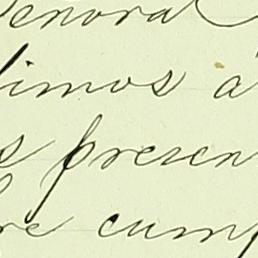 enora
limos a
s presen
re cump